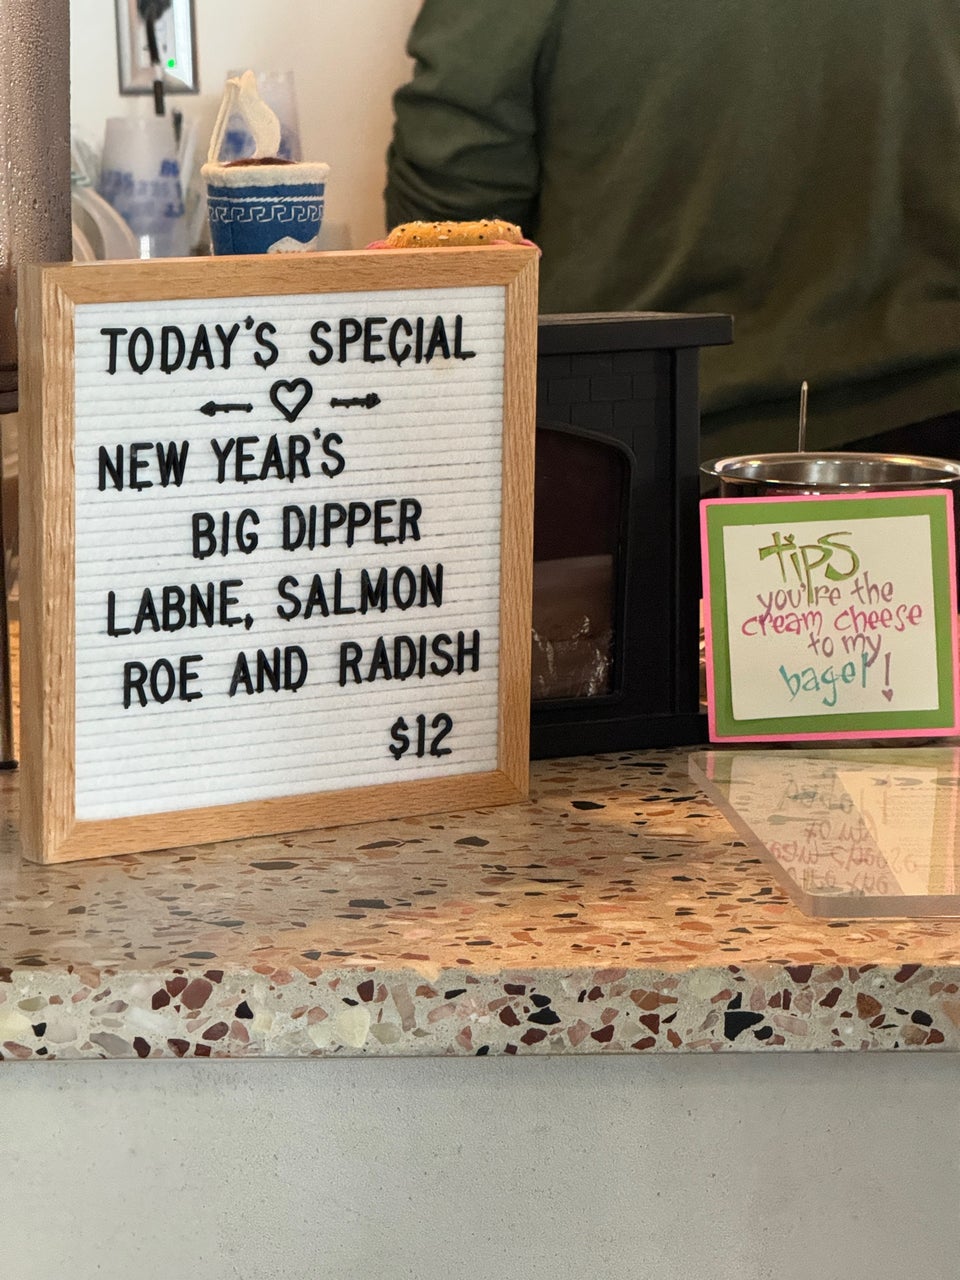 TODAY'S SPECIAL
NEW YEAR'S
BIG DIPPER
LABNE, SALMON
ROE AND RADISH
$12
tips
you're the
cream cheese
to my
bagel!